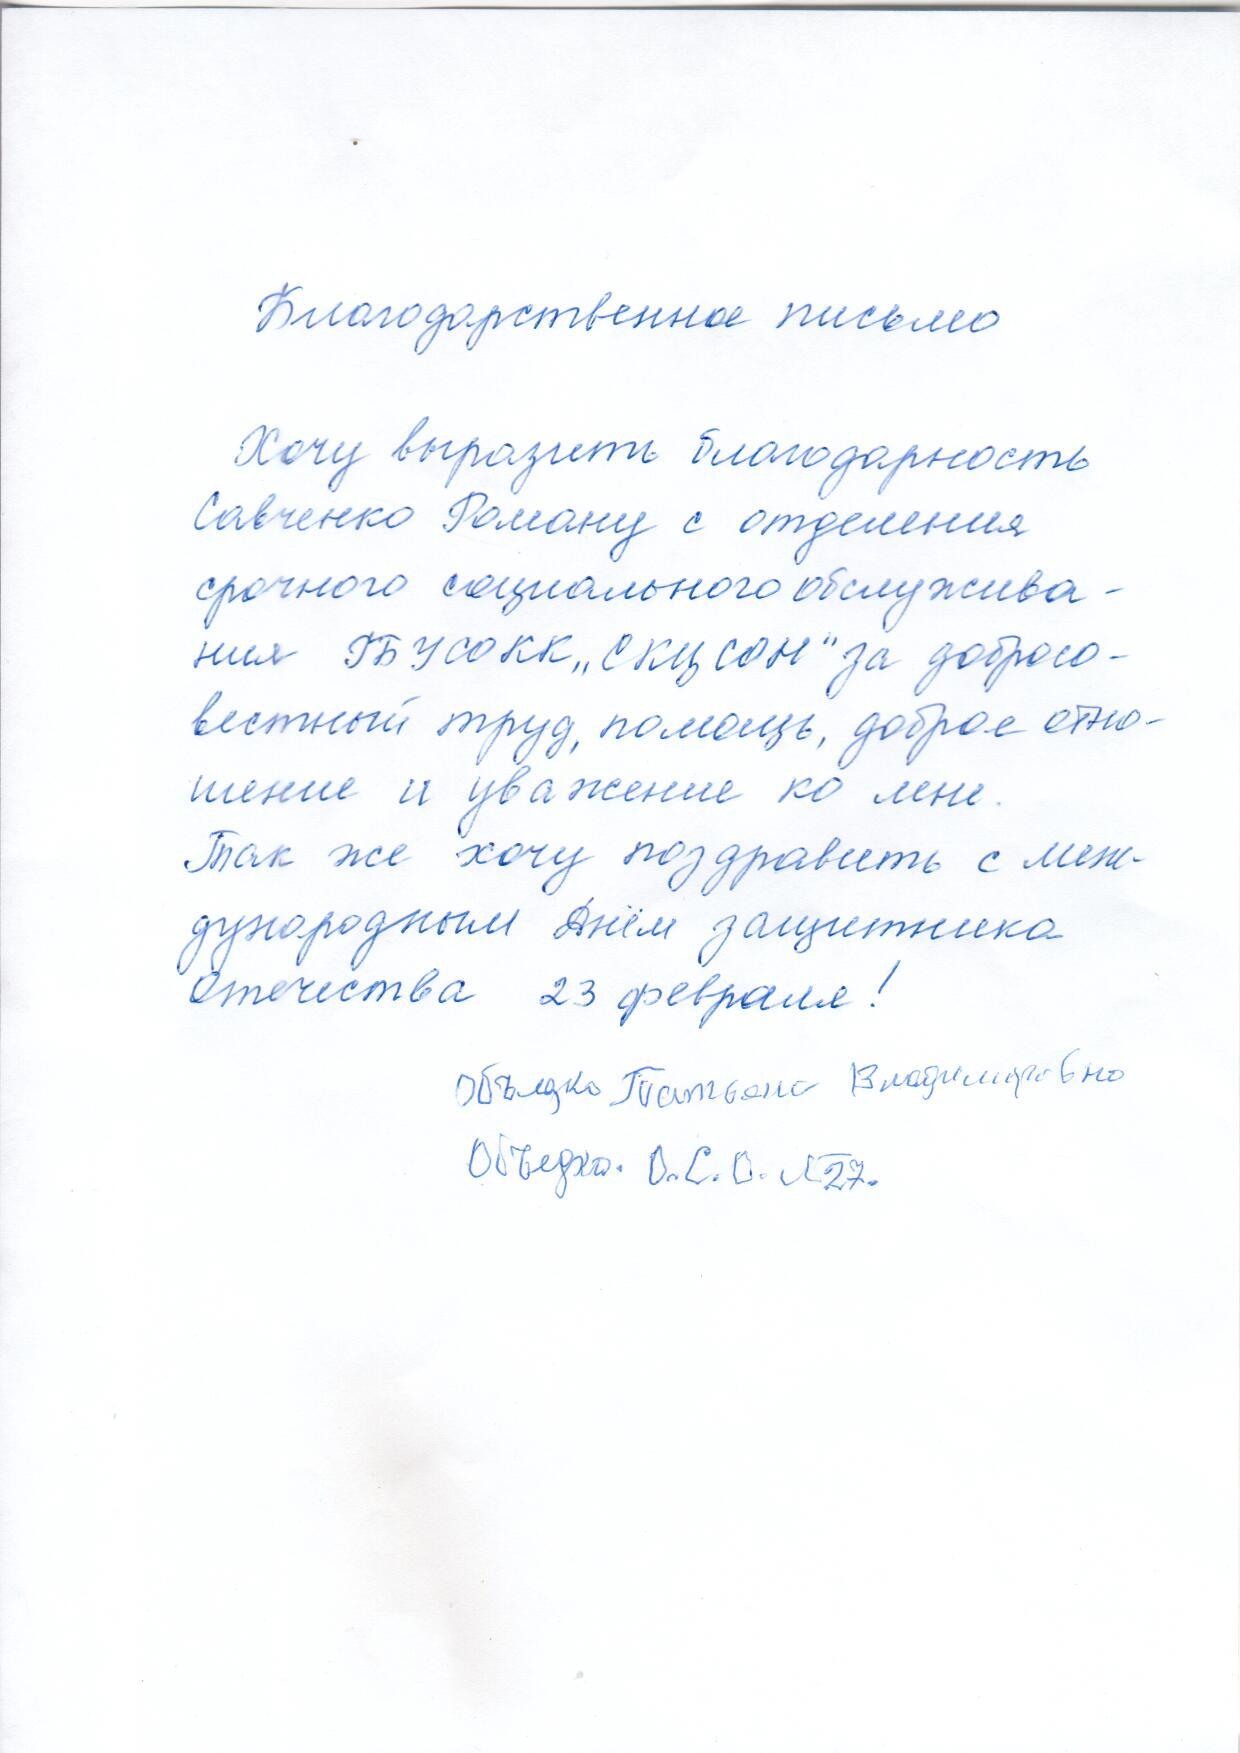 Благодарственное письмо
Хочу выразить благодарность
Савченко Роману с отделения
срочного социального обслужива-
ния ГБУСОКК „СКЦСОН" за добросо-
вестный труд, помощь, доброе отно-
шение и уважение ко мне.
Так же хочу поздравить с меж-
дународным Днём защитника
Отечества 23 февраля!
Объедко Татьяна Владимировна
О.С.О. №27.